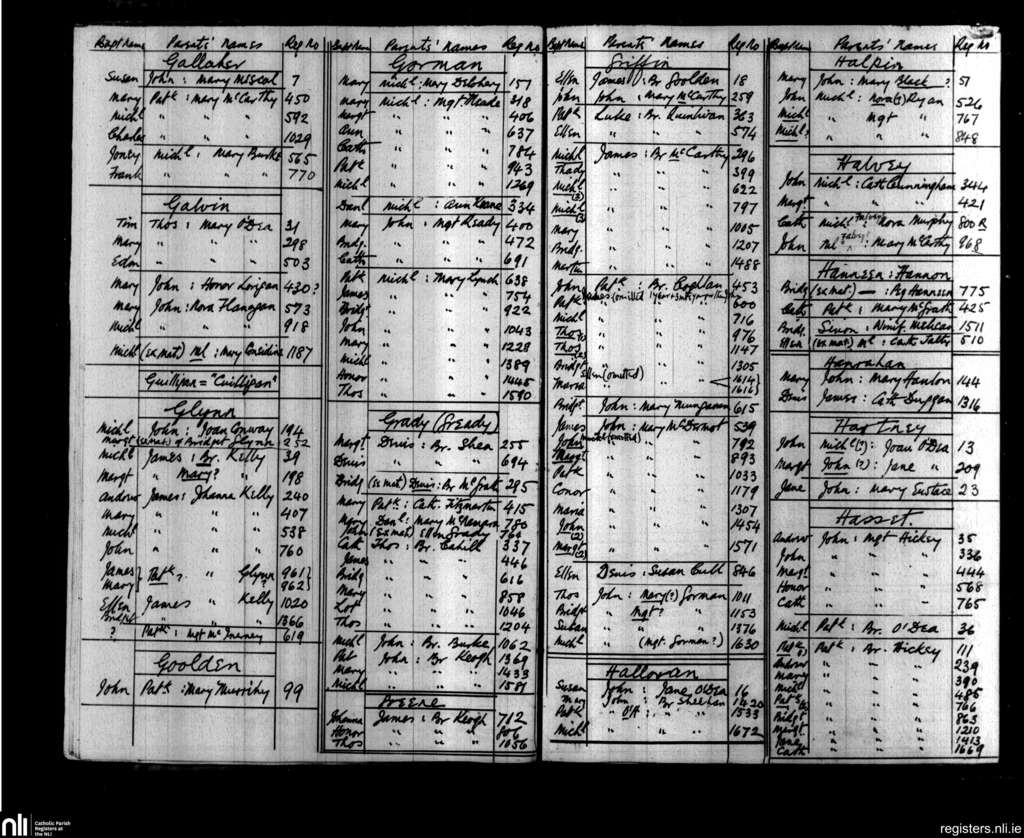 Bapt Name Parents' Names Reg No
Gallaher
Susan John : Mary Miscal 7
Mary Patk : Mary McCarthy 450
Michl " " " 592
Charles " " " 1029
Michl : Mary Burke 565
Frank " " " 770
Galvin
Tim Thos : Mary O'Dea 31
Mary " " " 298
Edm " " " 503
Mary John : Honor Lorigan 430?
Mary John : Nora Flanagan 573
Michl " " " 918
Michl (ex mat) Ml : Mary Considine 1187
Guilligan = "Cuilligan"
Glynn
Michl John : Joan Conway 194
Margt (ex mat) of Bridget Glynn 252
Michl James : Br. Kelly 39
Margt " Mary? " 198
Andrew James : Johanna Kelly 240
Mary " " " 407
Michl " " " 538
John " " " 760
James } Patk, " Glynn 961}
Mary } 962}
Ellen James " Kelly 1020
Bridget " " " 1366
? Patk : Mgt McInerney 619
Goolden
John Patk : Mary Murrihy 99
Bapt Name Parents' Names Reg No
Gorman
Mary Michl : Mary Dilohery 157
Mary Michl : Mgt Meade 318
Margt " " " 406
Ann " " " 637
Cath " " " 784
Patk " " " 943
Michl " " " 1269
Danl Michl : Ann Keane 334
Mary John : Mgt Ready 400
Bridg. " " " 472
Cath " " " 691
Patk Michl : Mary Lynch 638
James " " " 754
Bridgt " " " 922
John " " " 1043
Mary " " " 1228
Michl " " " 1389
Honor " " " 1445
Thos " " " 1590
Grady (Gready)
Margt Denis : Br. Shea 255
Denis " " " 694
Bridg (ex mat) Denis : Br McGrath 295
Mary Patk : Cath. Fitzmartin 415
Mary Danl : Mary McNamara 780
John (ex mat) Ellen Grady 760
Cath Thos : Br. Cahill 337
James " " " 446
Bridg " " " 616
Mary " " " 858
Lot " " " 1046
Thos " " " 1204
Michl John : Br. Burke 1062
Pat John : Br Keogh 1369
Mary " " " 1433
Michl " " " 1581
Greene
Johanna James : Br Keogh 712
Honor " " " 806
Thos " " " 1056
Bapt Name Parents' Names Reg No
Griffin
Ellen James : Br Goolden 18
John John : Mary McCarthy 259
Patk Luke : Br. Quinlivan 363
Ellen " " " 574
Michl James : Br McCarthy 296
Thady " " " 399
Michl (2) " " " 622
Michl (3) " " " 797
Mary " " " 1005
Bridg. " " " 1207
Martin " " " 1488
John Patk : Br. Coghlan 453
Patk 600
Michl " " " 716
Thos " " " 976
Thos (2) " " " 1147
Bridgt " " " 1305
Ellen (omitted)
Maria " " " 1614}
1616}
Bridgt John : Mary Mungavan 615
James John : Mary McDermot 539
John " " " 792
Margt " " " 893
Patk " " " 1033
Conor " " " 1179
Maria " " " 1307
John (2) " " " 1454
Margt (2) " " " 1571
Ellen Denis : Susan Cull 846
Thos John : Mary(?) Gorman 1011
Bridgt " Mgt? " 1153
Susan " " " 1376
Michl " (Mgt Gorman?) 1630
Halloran
Susan John : Jane O'Dea 16
Mary John : Br Sheehan 1420
Patk " O'H : " " 1533
Michl " " " 1672
Bapt Name Parents' Names Reg No
Halpin
Mary John : Mary Black ? 51
John Michl : Nora(?) Ryan 526
Michl " Mgt " 767
Michl? " " " 848
Halvey
John Michl : Cath Cunningham 344
Margt " " " 421
Cath Michl Falvey? : Nora Murphy 800 R
John Ml Falvey? : Mary McCarthy 968
Hanneen : Hannon
Bridg (ex mat) — : Bg Hanneen 775
Cath Patk : Mary McGrath 425
Bridg. Simon : Winif Melican 1511
Ellen (ex mat) Ml : Cath Falty 510
Hanrahan
Mary John : Mary Hanlon 144
Denis James : Cath Duggan 1316
Hartney
John Michl (?) : Joan O'Dea 13
Margt John (?) : Jane " 209
Jane John : Mary Eustace 23
Hasset.
Andrew John : Mgt Hickey 35
John " " " 336
Margt " " " 444
Honor " " " 568
Cath " " " 765
Michl Patk : Br. O'Dea 36
Patk Patk : Br. Hickey 111
Andrew " " " 239
Mary " " " 390
Michl " " " 485
Patk " " " 766
Bridgt " " " 863
Margt " " " 1210
Jane " " " 1413
Cath " " " 1669
nli Catholic Parish
Registers at
the NLI
registers.nli.ie